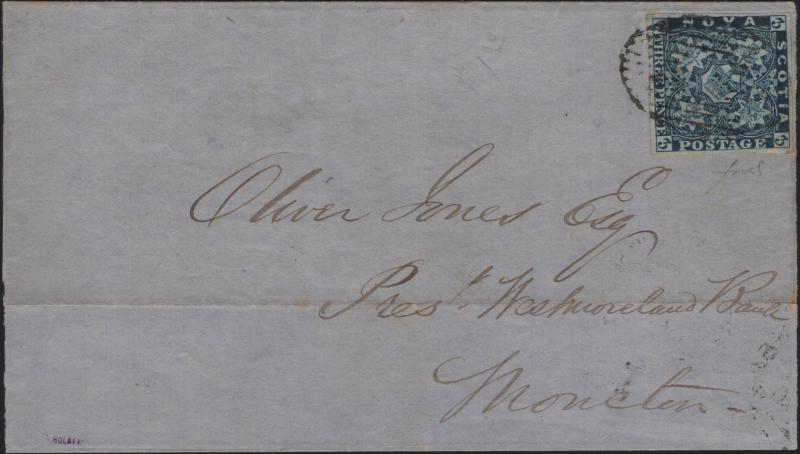 NOVA
SCOTIA
THREE PENCE
POSTAGE
Oliver Jones Esq
Prest. Westmoreland Bank
Moncton